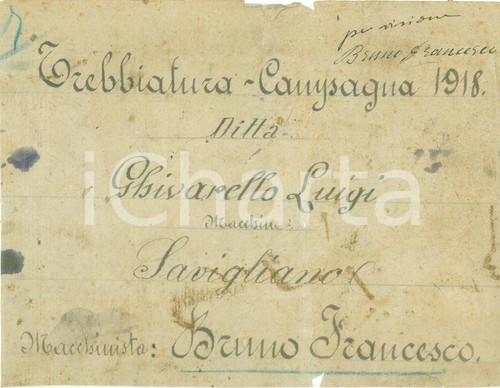 per visione
Bruno Francesco
Trebbiatura - Campagna 1918.
Ditta
Ghivarello Luigi
Macchine:
Savigliano
Macchinista: Bruno Francesco.
iCharta